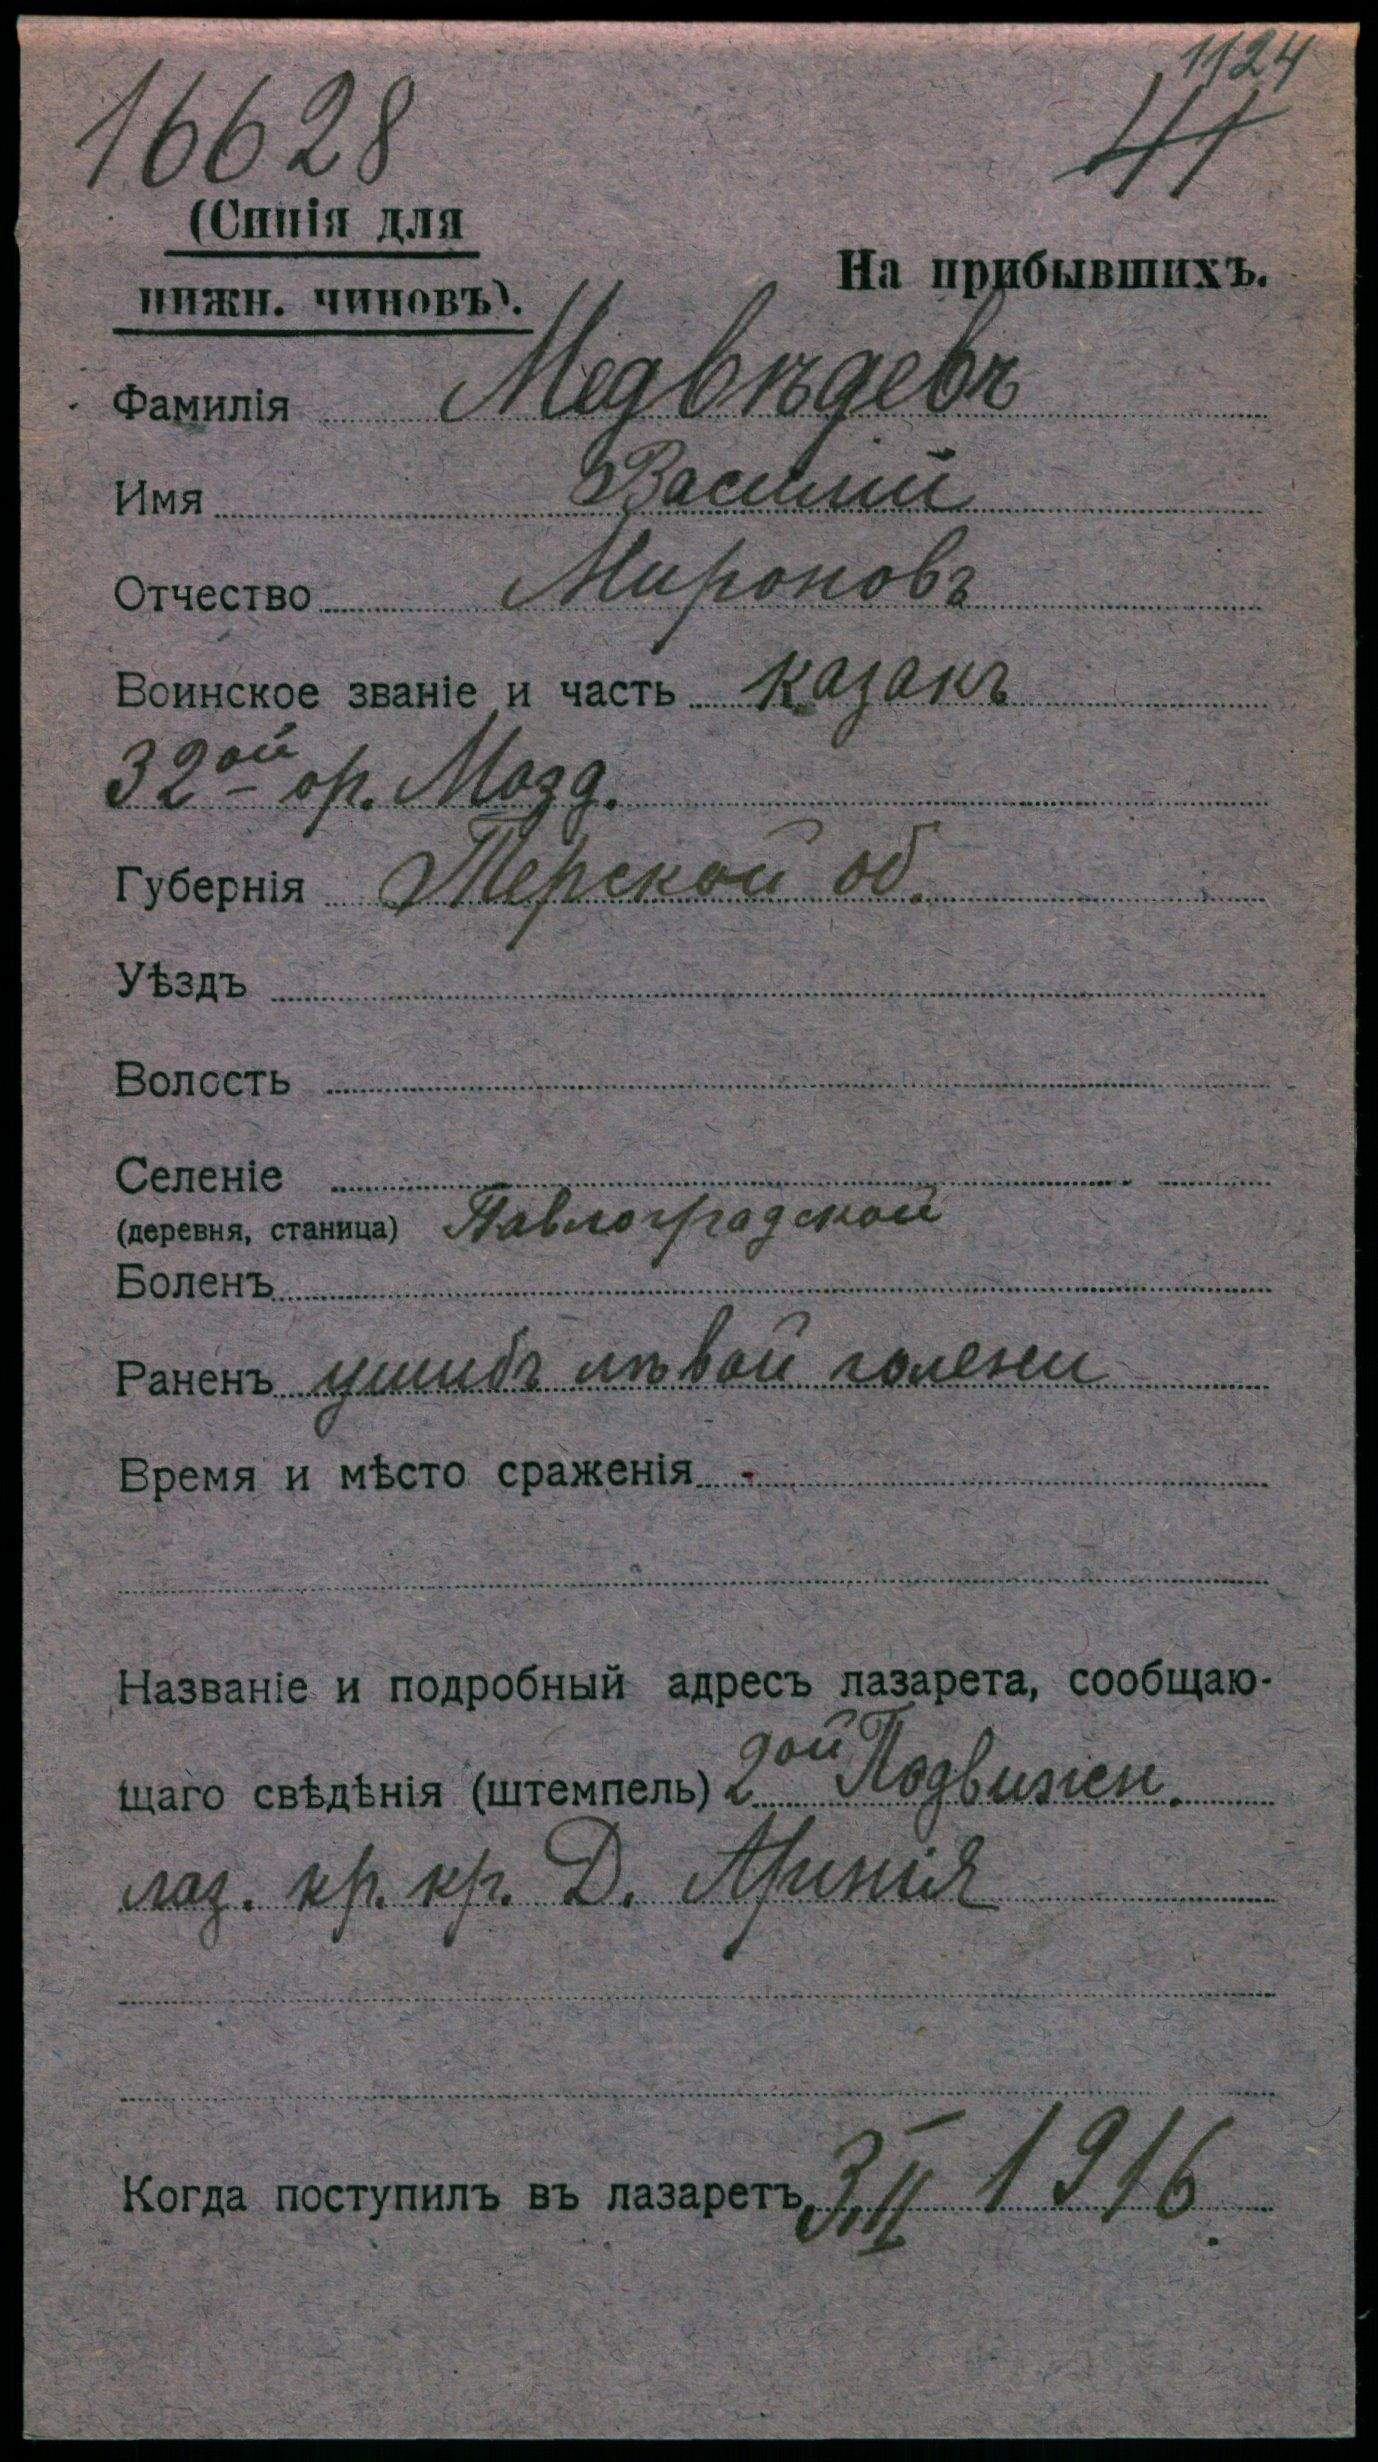 1124
16628 41
(Синія для
нижн. чиновъ).
На прибывшихъ.
Фамилія Медвѣдевъ
Имя Василій
Отчество Мироновъ
Воинское званіе и часть казакъ
32ой ор. Мозд.
Губернія Терской об.
Уѣздъ
Волость
Селеніе
(деревня, станица) Павлоградской
Боленъ
Раненъ ушибъ лѣвой голени
Время и мѣсто сраженія -
Названіе и подробный адресъ лазарета, сообщаю-
щаго свѣдѣнія (штемпель) 2ой Подвижн.
лаз. кр. кр. Д. Аринія
Когда поступилъ въ лазаретъ 3/II 1916.